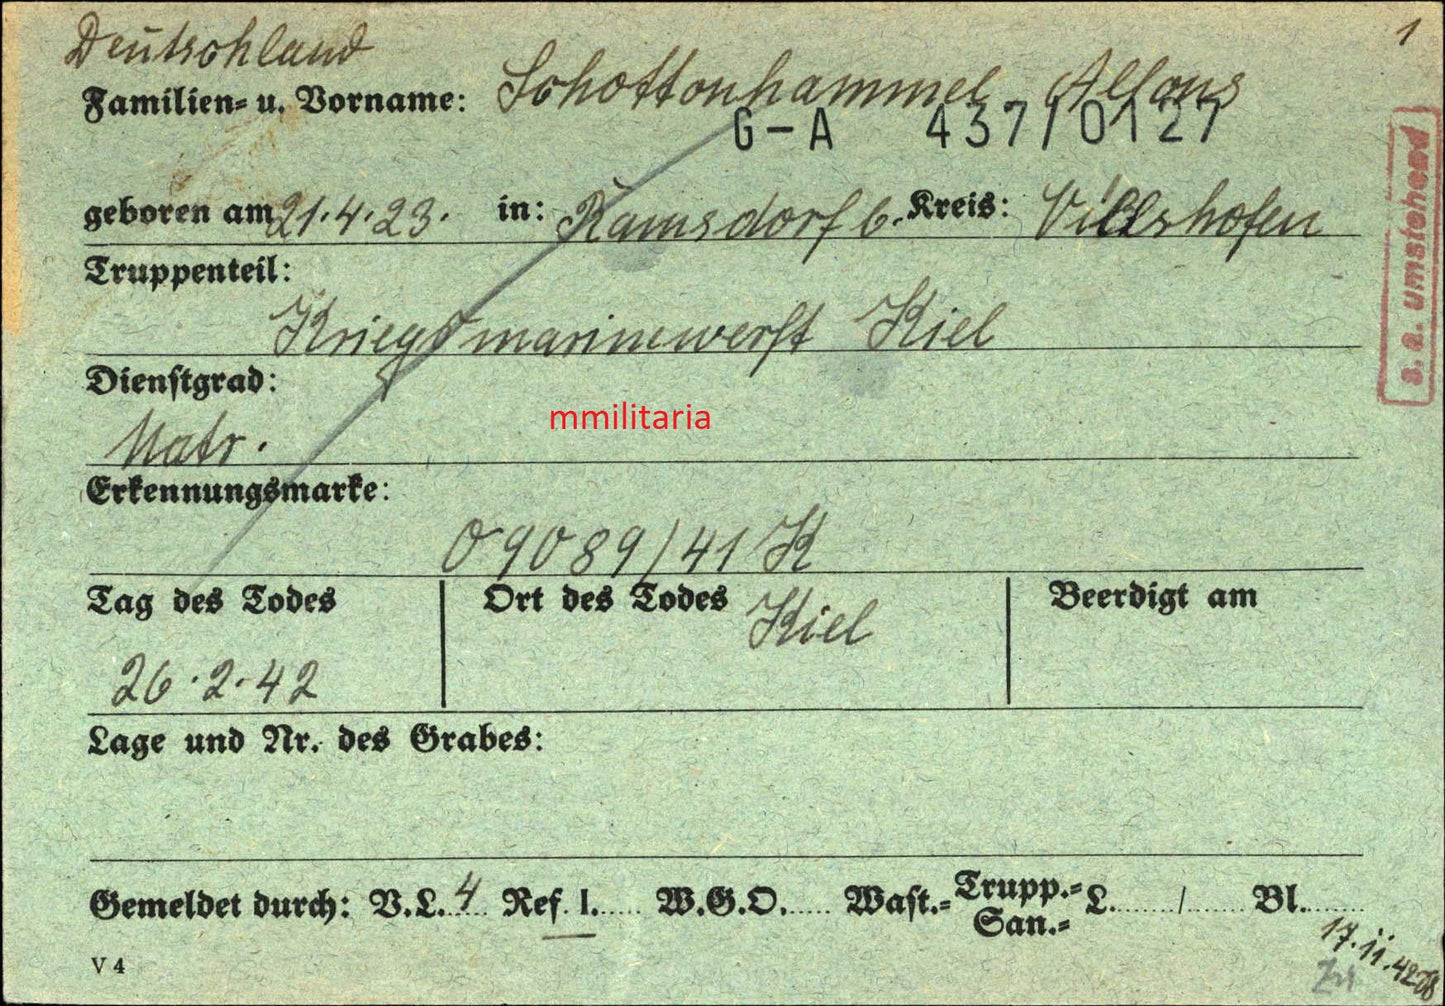 1
Deutschland
Familien- u. Vorname: Schottenhammel Alfons
G-A 437/0127
geboren am 21.4.23. in: Ramsdorf b. Kreis: Vilshofen
s. a. umstehend
Truppenteil:
Kriegsmarinewerft Kiel
Dienstgrad:
Matr.
mmilitaria
Erkennungsmarke:
O 9089/41 K
Tag des Todes Ort des Todes Kiel Beerdigt am
26.2.42
Lage und Nr. des Grabes:
Gemeldet durch: V.L. 4 Ref. I. W.G.O. Wast.- Trupp.- San.- L. / Bl.
17.11.42
V 4